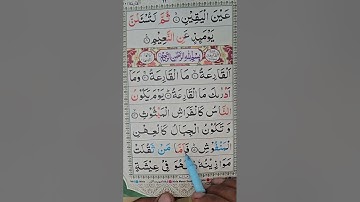 عَيْنَ الْيَقِيْنِ ۙ ثُمَّ لَتُسْـَٔلُنَّ
يَوْمَئِذٍ عَنِ النَّعِيْمِ
بِسْمِ اللّٰهِ الرَّحْمٰنِ الرَّحِيْمِ
اَلْقَارِعَةُ ۙ مَا الْقَارِعَةُ ۚ وَمَاۤ
اَدْرٰىكَ مَا الْقَارِعَةُ ؕ يَوْمَ يَكُوْنُ
النَّاسُ كَالْفَرَاشِ الْمَبْثُوْثِ ۙ
وَ تَكُوْنُ الْجِبَالُ كَالْعِهْنِ
الْمَنْفُوْشِ ؕ فَاَمَّا مَنْ ثَقُلَتْ
مَوَازِيْنُهٗ ۙ فَهُوَ فِيْ عِيْشَةٍ